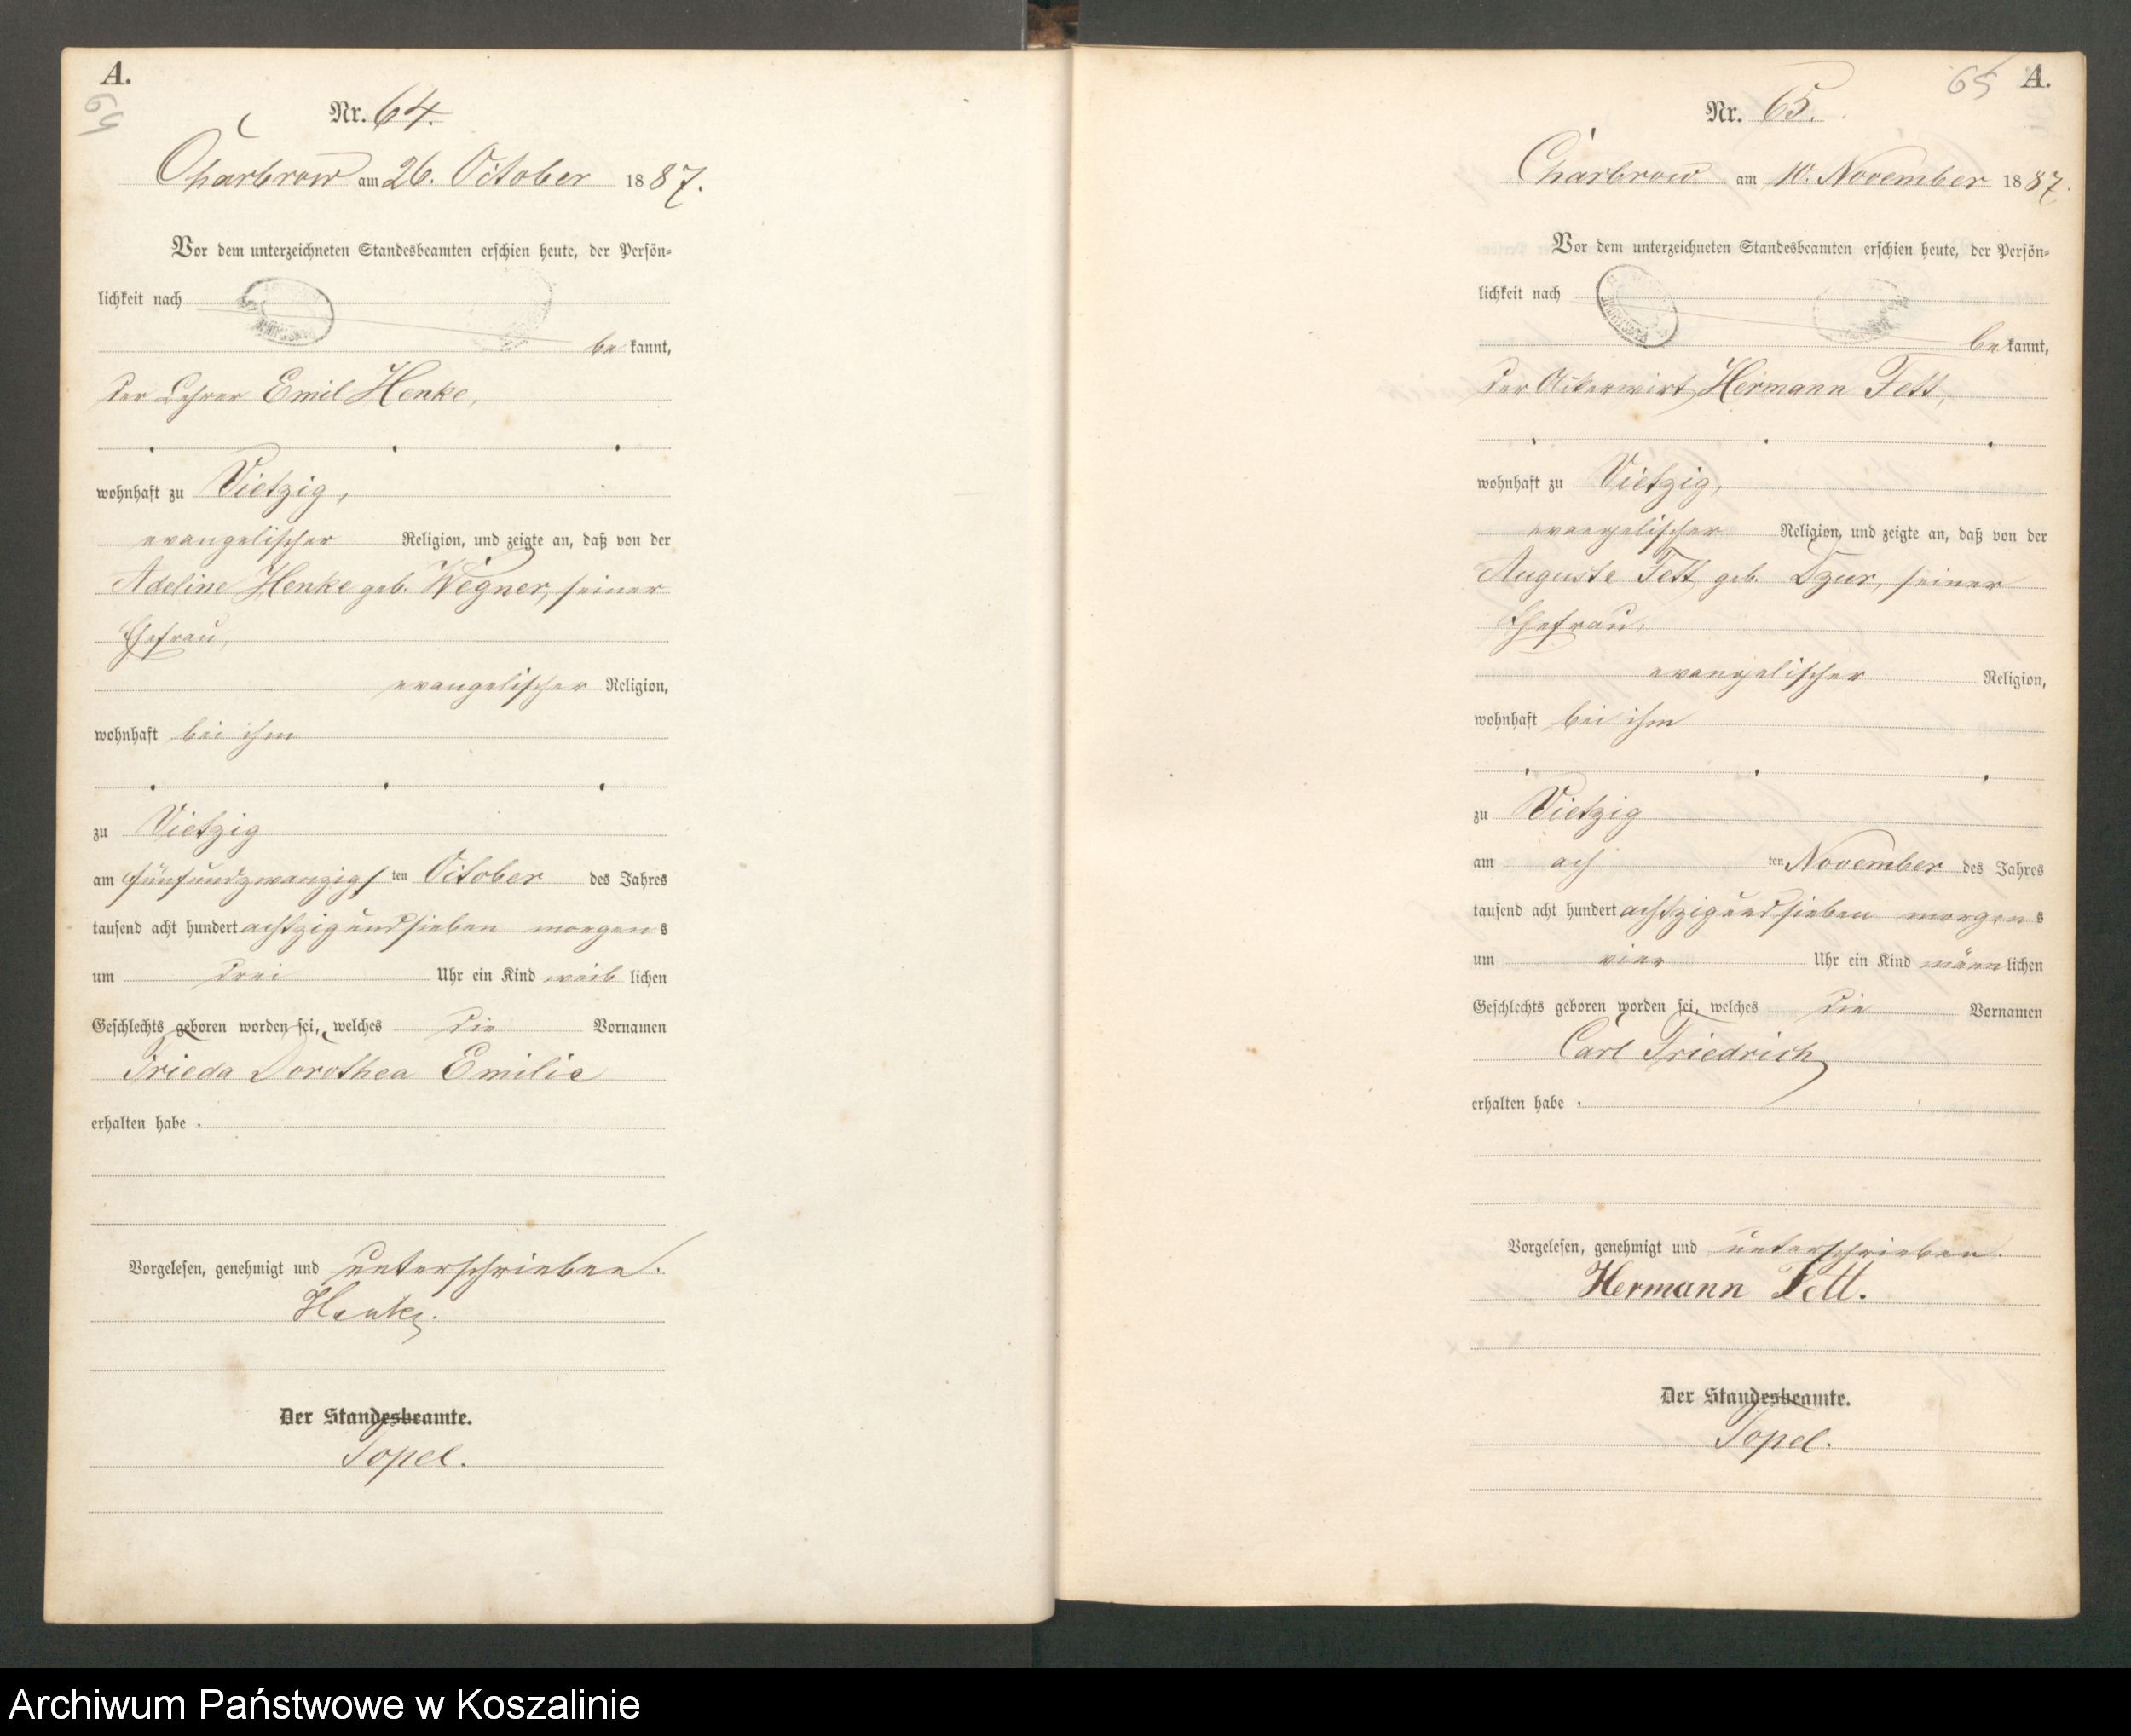 A.
64
Nr. 64.
Charbrow am 26. October 1887.
Vor dem unterzeichneten Standesbeamten erschien heute, der Persön-
lichkeit nach
be kannt,
der Lehrer Emil Henke,
wohnhaft zu Vietzig,
evangelischer Religion, und zeigte an, daß von der
Adeline Henke geb. Wegner, seiner
Ehefrau,
evangelischer Religion,
wohnhaft bei ihm
zu Vietzig
am fünfundzwanzigsten October des Jahres
tausend acht hundert achtzig und sieben morgens
um drei Uhr ein Kind weiblichen
Geschlechts geboren worden sei, welches die Vornamen
Frieda Dorothea Emilie
erhalten habe.
Vorgelesen, genehmigt und unterschrieben.
Henke.
Der Standesbeamte.
Topel.
65 A.
Nr. 65.
Charbrow am 10. November 1887.
Vor dem unterzeichneten Standesbeamten erschien heute, der Persön-
lichkeit nach
be kannt,
der Ackerwirt Hermann Fett,
wohnhaft zu Vietzig,
evangelischer Religion, und zeigte an, daß von der
Auguste Fett geb. Dzur, seiner
Ehefrau,
evangelischer Religion,
wohnhaft bei ihm
zu Vietzig
am achten November des Jahres
tausend acht hundert achtzig und sieben morgens
um vier Uhr ein Kind männlichen
Geschlechts geboren worden sei, welches die Vornamen
Carl Friedrich
erhalten habe.
Vorgelesen, genehmigt und unterschrieben.
Hermann Fett.
Der Standesbeamte.
Topel.
Archiwum Państwowe w Koszalinie